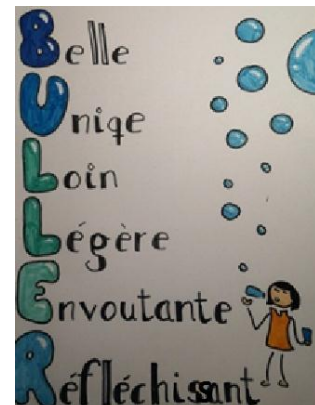 Belle
Uniqe
Loin
Légère
Envoutante
Réfléchissant